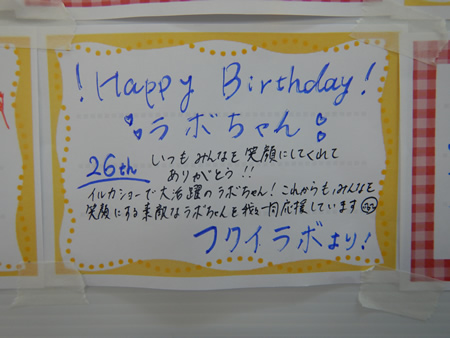 ！Happy Birthday！
ラボちゃん
26th いつもみんなを笑顔にしてくれて
ありがとう！！
イルカショーで大活躍のラボちゃん！これからも、みんなを
笑顔にする素敵なラボちゃんを我々一同応援しています
フクイラボより！